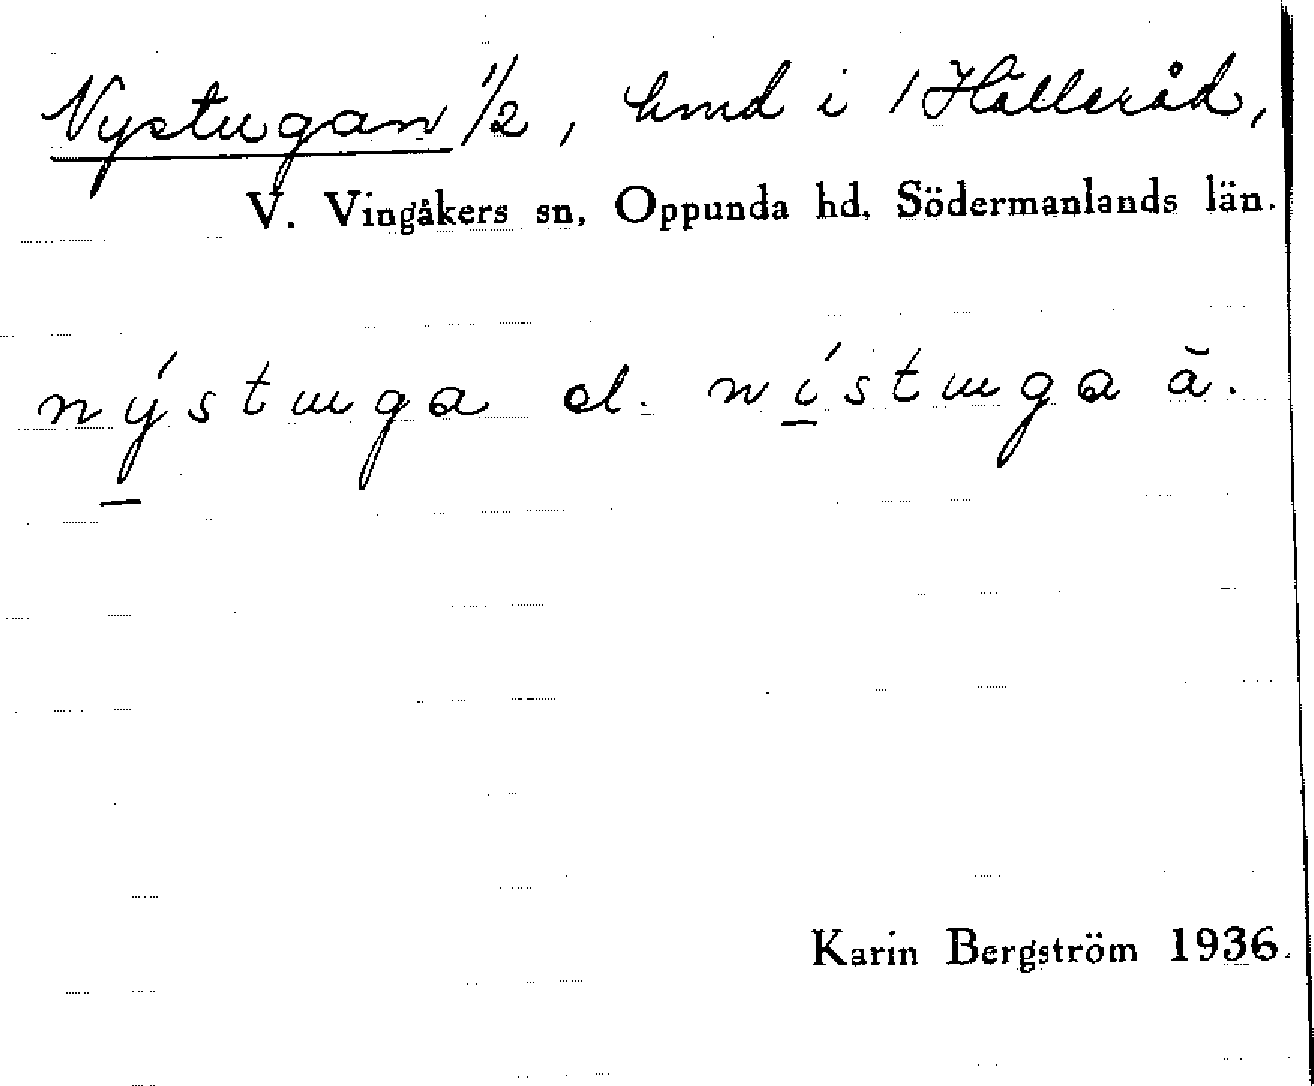 Nystugan 1/2, hmd i Hälleråd,
V. Vingåkers sn, Oppunda hd, Södermanlands län.
nýstuga el. nístuga ă.
Karin Bergström 1936.